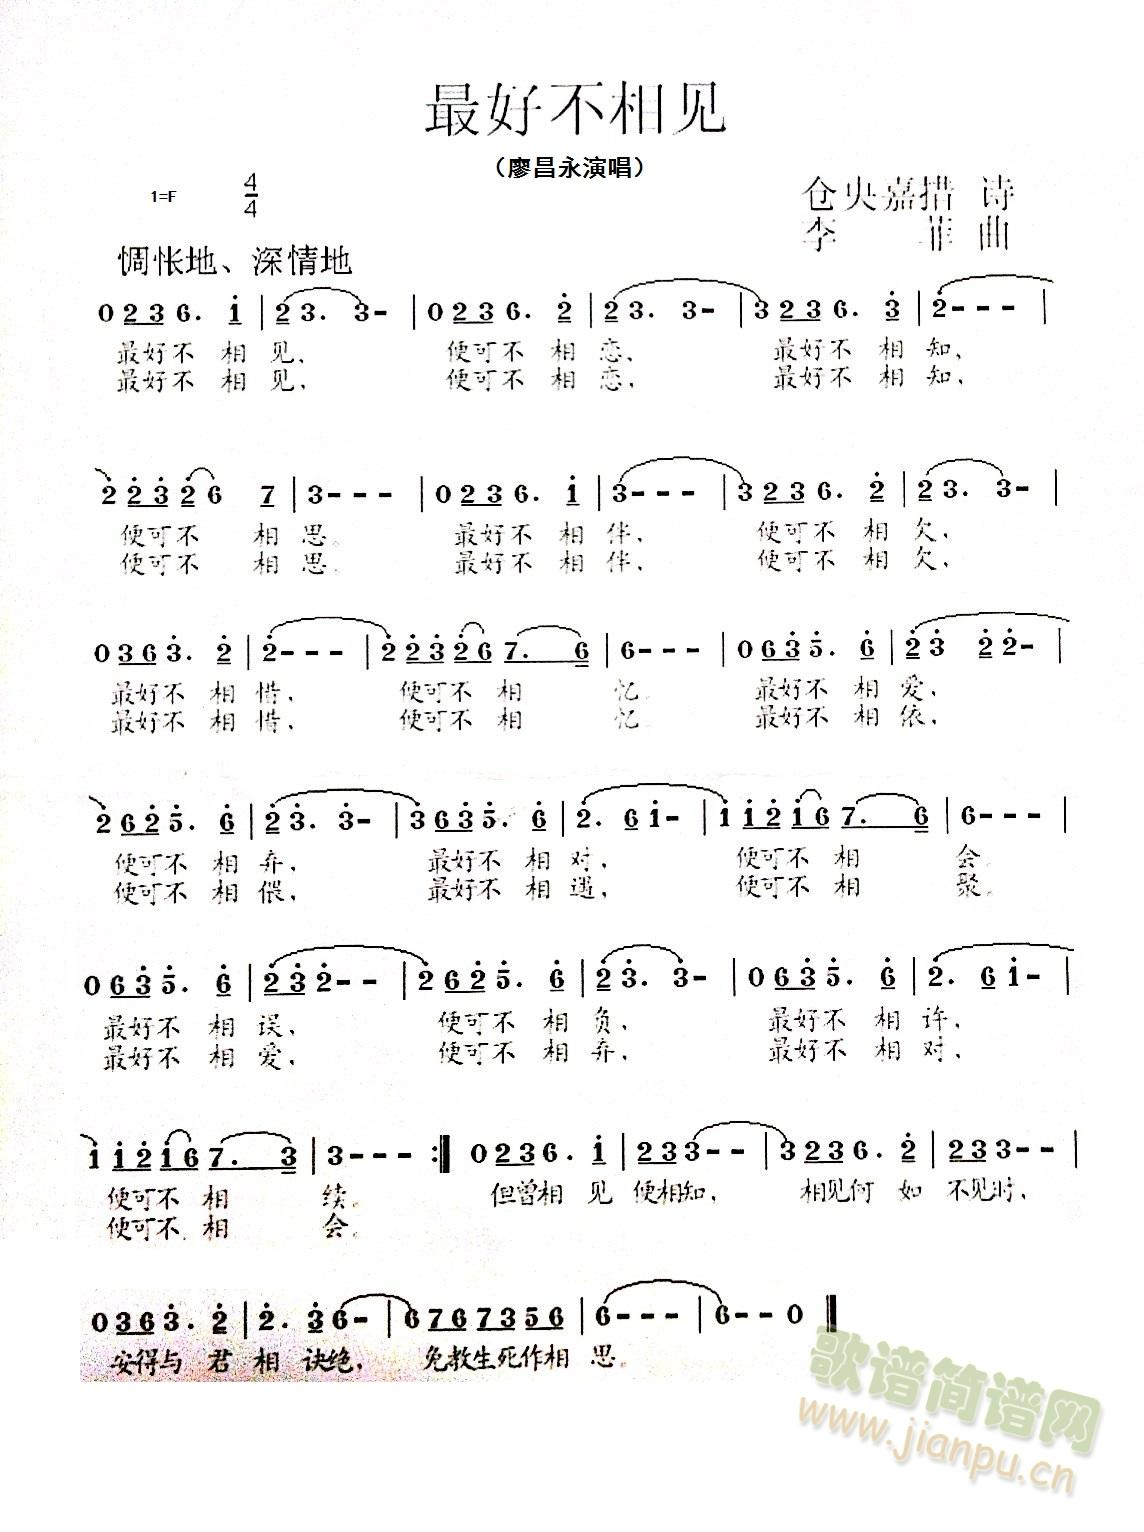 最好不相见
（廖昌永演唱）
1=F 4/4
仓央嘉措 诗
李菲 曲
惆怅地、深情地
0 2 3 6. i | 2 3. 3 - | 0 2 3 6. 2 | 2 3. 3 - | 3 2 3 6. 3 | 2 - - -
最好不相见， 便可不相恋， 最好不相知，
最好不相见， 便可不相恋， 最好不相知，
2 2 3 2 6 7 | 3 - - - | 0 2 3 6. i | 3 - - - | 3 2 3 6. 2 | 2 3. 3 - |
便可不相思。 最好不相伴， 便可不相欠，
便可不相思。 最好不相伴， 便可不相欠，
0 3 6 3. 2 | 2 - - - | 2 2 3 2 6 7. 6 | 6 - - - | 0 6 3 5. 6 | 2 3 2 2 - |
最好不相惜， 便可不相忆。 最好不相爱，
最好不相惜， 便可不相忆。 最好不相依，
2 6 2 5. 6 | 2 3. 3 - | 3 6 3 5. 6 | 2. 6 i - | i i 2 i 6 7. 6 | 6 - - - |
便可不相弃， 最好不相对， 便可不相会。
便可不相偎， 最好不相遇， 便可不相聚。
0 6 3 5. 6 | 2 3 2 - - | 2 6 2 5. 6 | 2 3. 3 - | 0 6 3 5. 6 | 2. 6 i - |
最好不相误， 便可不相负， 最好不相许，
最好不相爱， 便可不相弃， 最好不相对，
i i 2 i 6 7. 3 | 3 - - - :‖ 0 2 3 6. i | 2 3 3 - - | 3 2 3 6. 2 | 2 3 3 - - |
便可不相续。 但曾相见便相知， 相见何如不见时，
便可不相会。
0 3 6 3. 2 | 2. 3 6 - | 6 7 6 7 3 5 6 | 6 - - - | 6 - - 0 ‖
安得与君相诀绝， 免教生死作相思。
歌谱简谱网
www.jianpu.cn